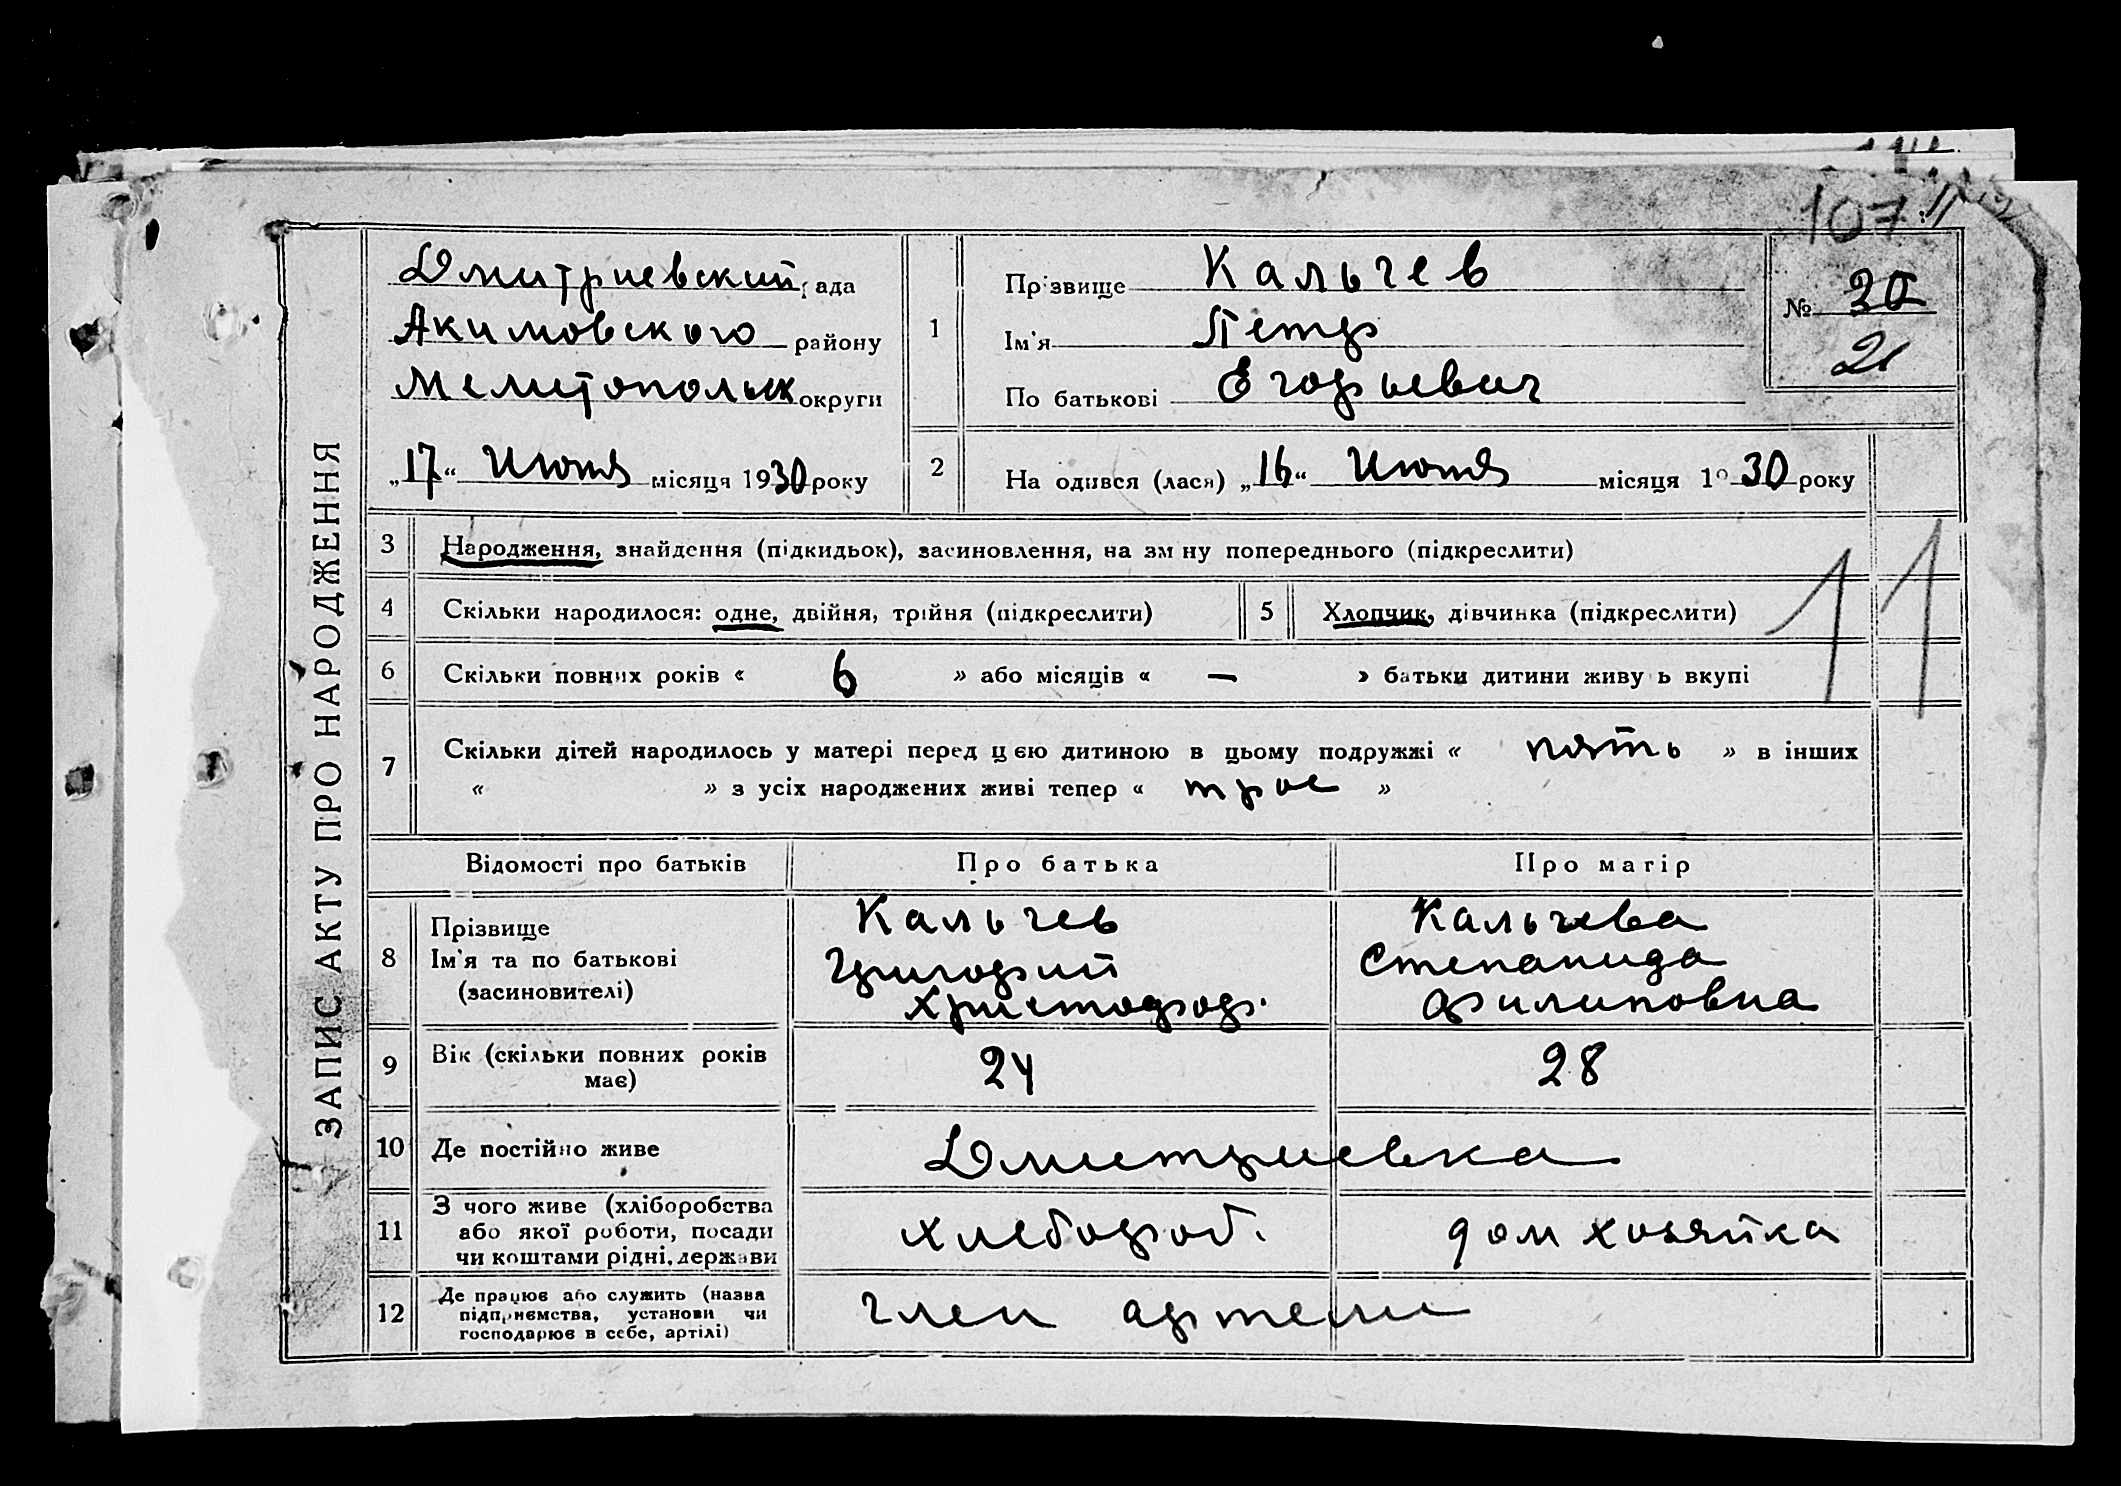 107
ЗАПИС АКТУ ПРО НАРОДЖЕННЯ
Дмитриевский рада
Акимовского району
Мелитопольск округи
„17“ Июня місяця 1930 року
1
Прізвище Кальчев
Ім'я Петр
По батькові Егорьевич
№ 20
21
2
На одився (лася) „16“ Июня місяця 1930 року
3 Народження, знайдення (підкидьок), засиновлення, на зм ну попереднього (підкреслити)
4 Скільки народилося: одне, двійня, трійня (підкреслити)
5 Хлопчик, дівчинка (підкреслити)
11
6 Скільки повних років « 6 » або місяців « — » батьки дитини живу ь вкупі
7 Скільки дітей народилось у матері перед цєю дитиною в цьому подружжі « пять » в інших
« » з усіх народжених живі тепер « трое »
Відомості про батьків Про батька Про матір
8
Прізвище
Ім'я та по батькові
(засиновителі)
Кальчев
Григорий
Христофор.
Кальчева
Степанида
Филиповна
9
Вік (скільки повних років
має)
24 28
10 Де постійно живе Дмитриевка
11
З чого живе (хліборобства
або якої роботи, посади
чи коштами рідні, держави
хлебороб. дом хозяйка
12
Де працює або служить (назва
підприємства, установи чи
господарює в себе, артілі)
член артели